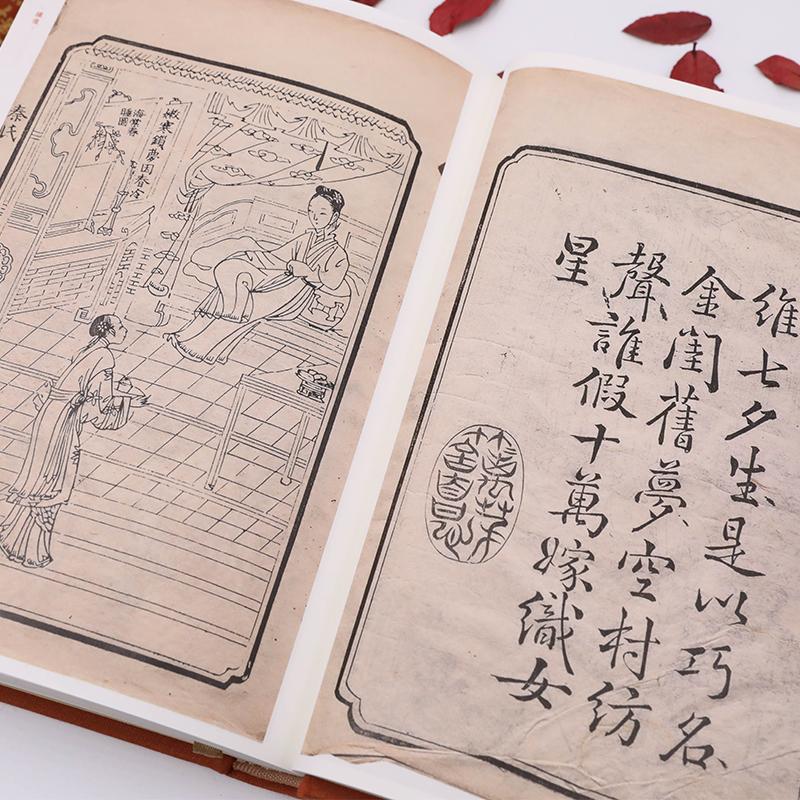 秦氏
嫩寒鎖夢因春冷
海棠春
睡圖
維七夕生是以巧名
金閨舊夢空村紡
聲誰假十萬嫁織女
星